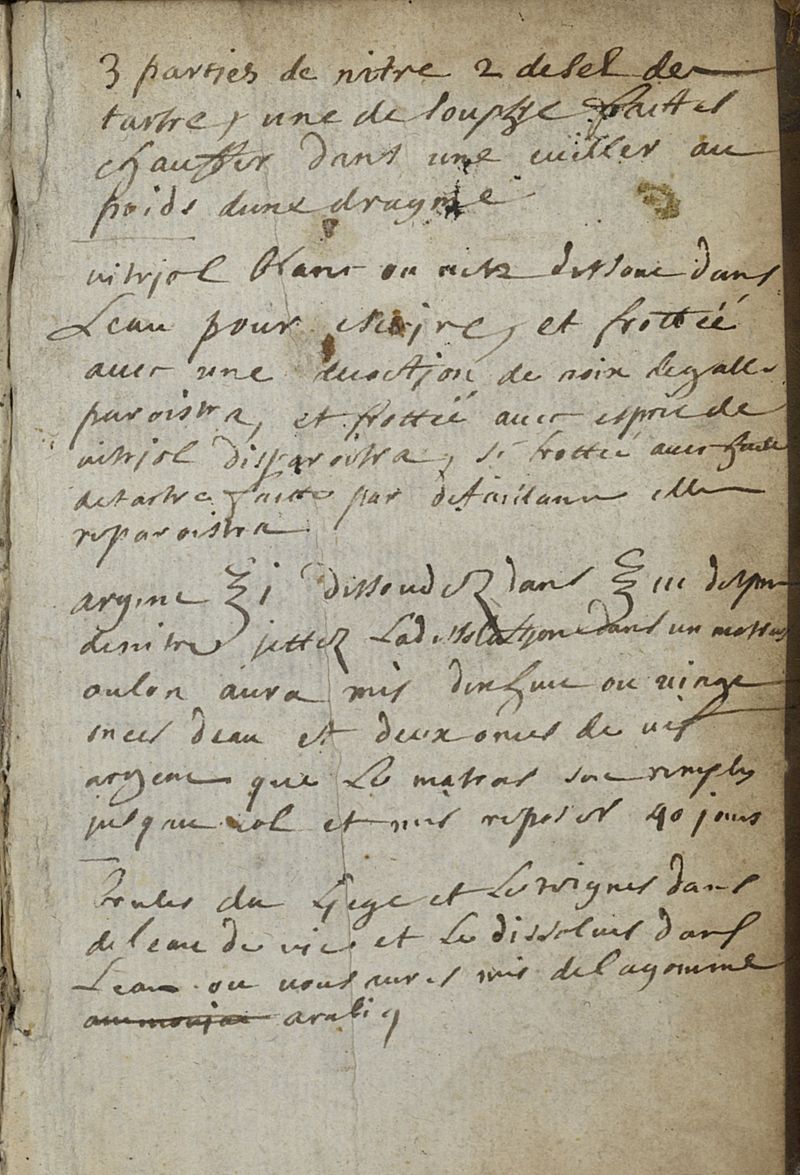 3 parties de nitre 2 de sel de
tartre, une de souphre faittes
chauffer dans une cuiller au
poids dune dragme
vitrjol blanc ou dissout dans
Leau pour escrjre, et frotteé
avec une decoctjon de noix de galle
paroistra, et frotteé avec esprit de
vitrjol disparoitra, si frotteé avec huile
de tartre faitte par defaillance elle
reparoistra
argent ℥ j dissoudez dans ℥ iii desprit
de nitre jettez La dissolutjon dans un matras
ou lon aura mis dixhuit ou vingt
onces deau et deux onces de vif
argent que Le matras soit remply
jusquau col et mis reposer 40 jours
brules du Ljege et Le dans
de leau de vie et Le dissolves dans
Leau ou vous aures mis de la gomme
ammonjac arabiq